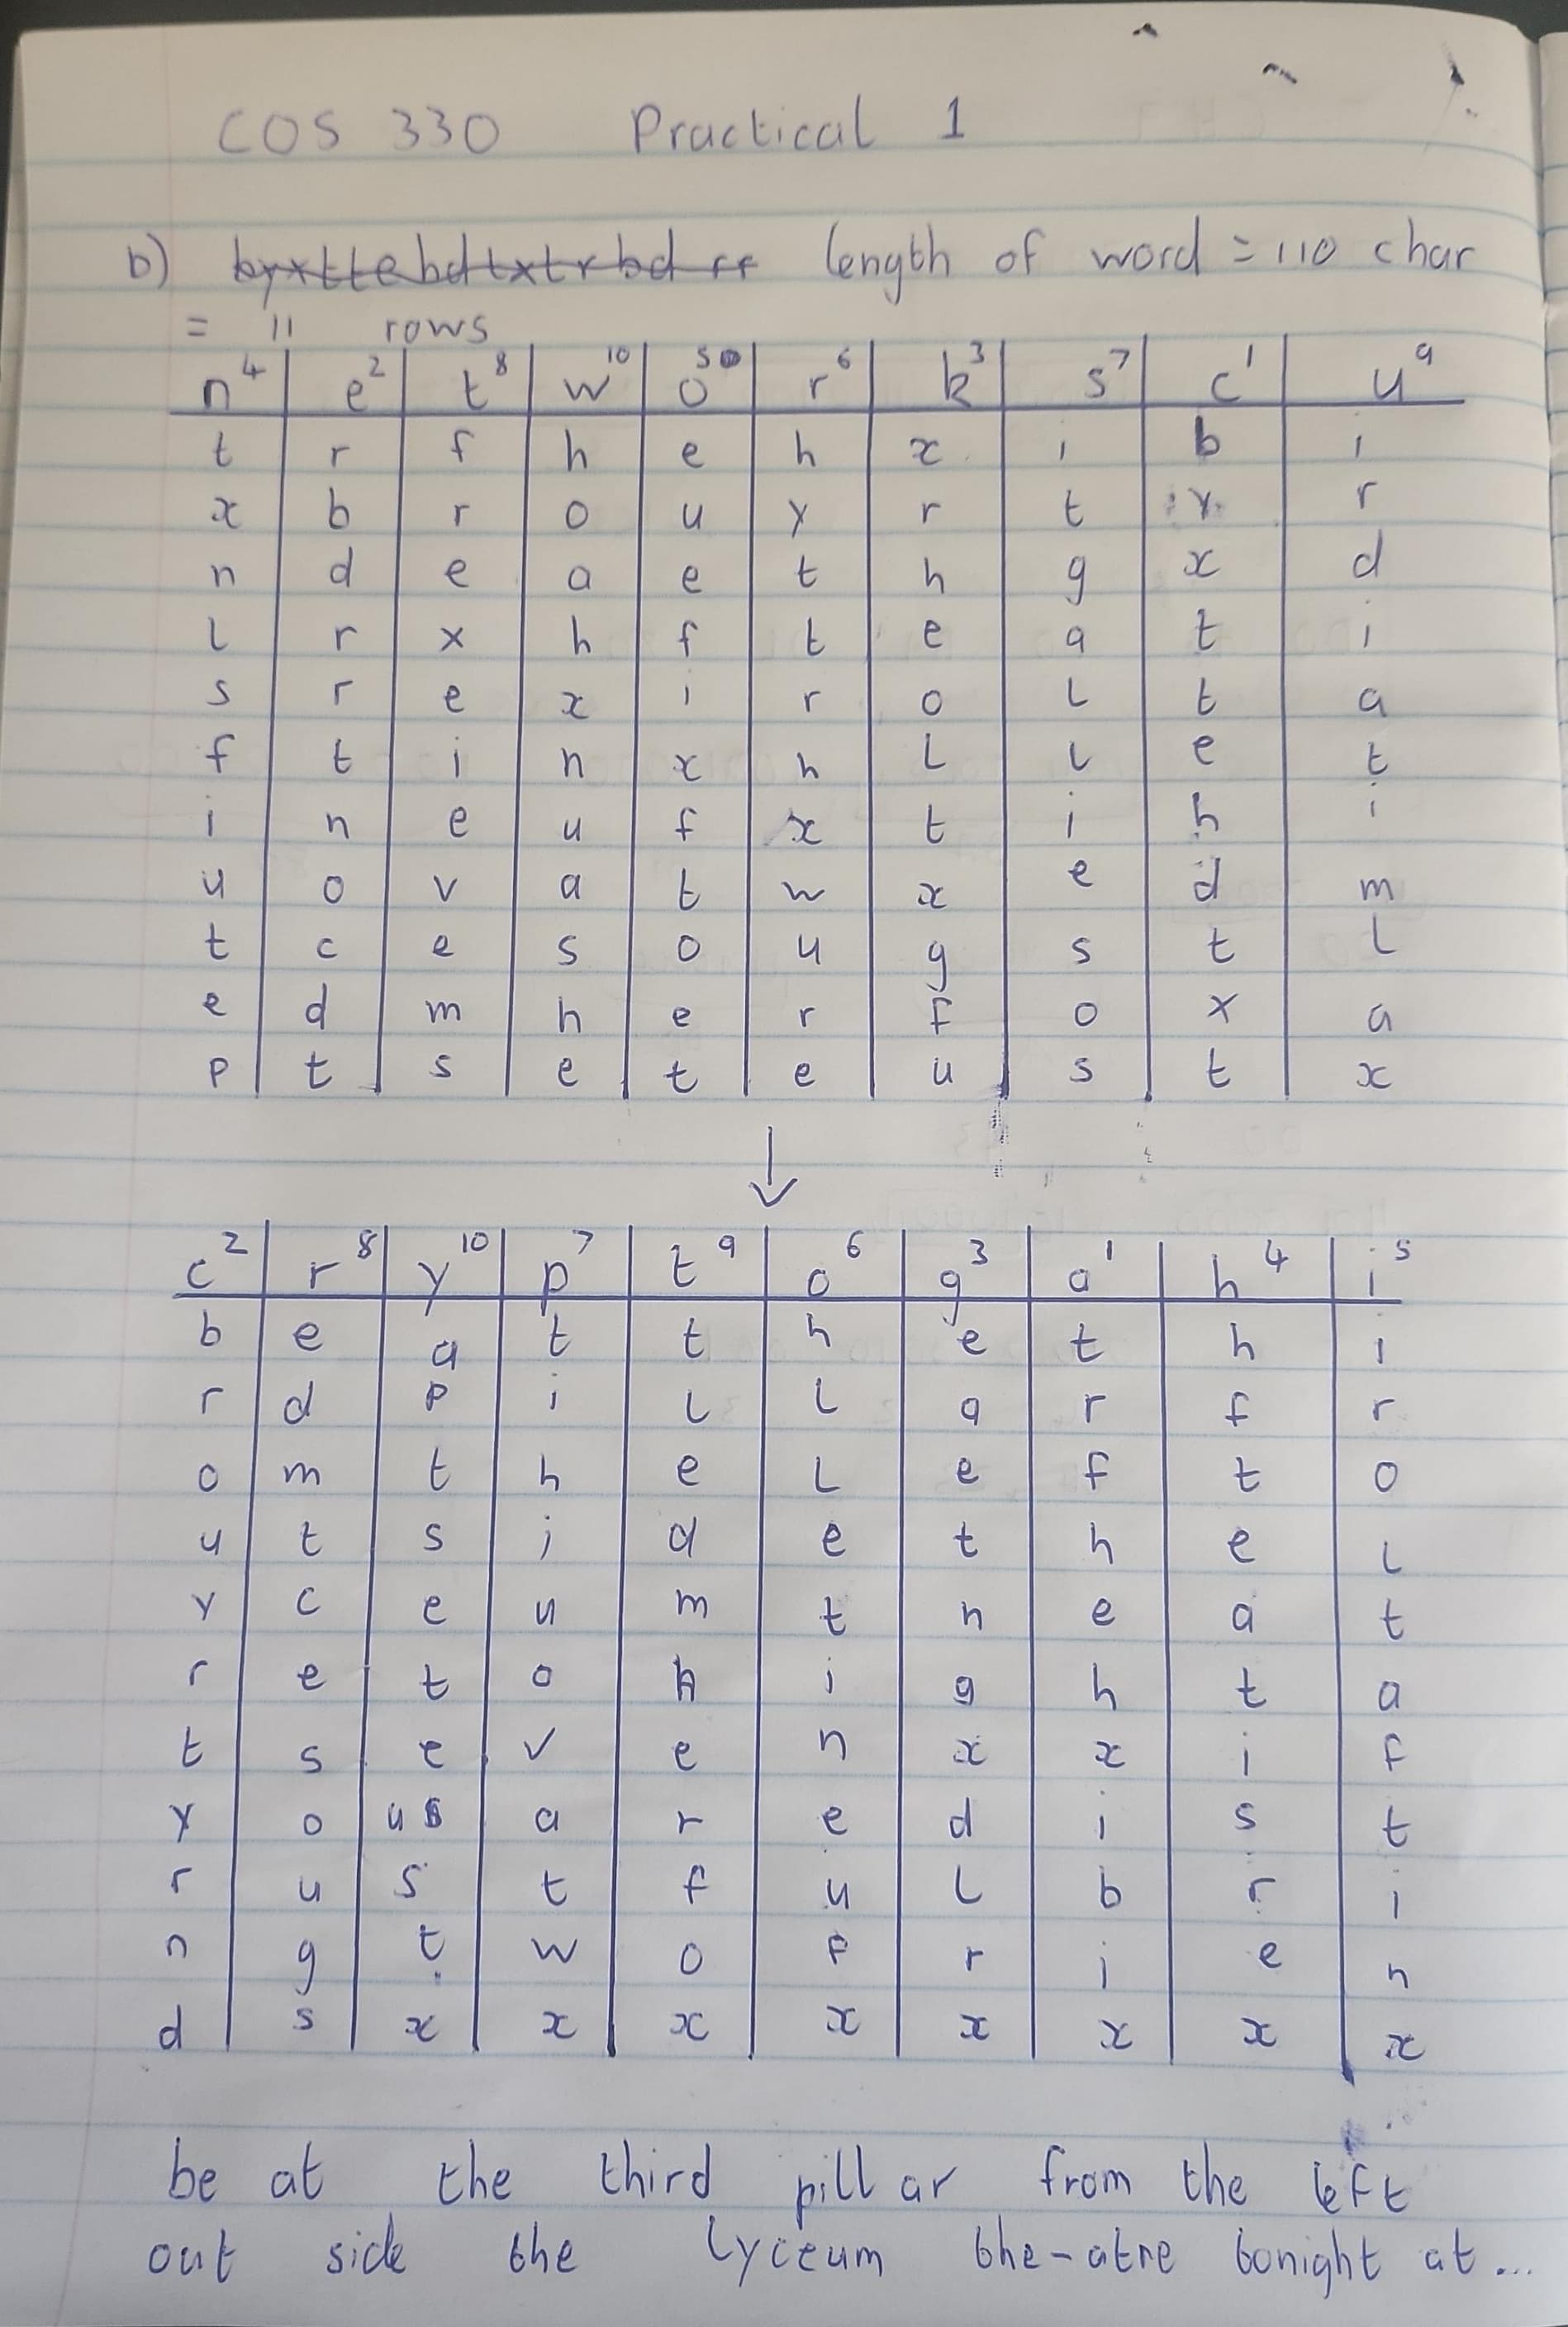 COS 330 Practical 1
b) byxttehdtxtrbd rr length of word = 110 char
= 11 rows
n⁴ e² t⁸ w¹⁰ o⁵ r⁶ k³ s⁷ c¹ u⁹
t r f h e h x i b i
x b r o u y r t y r
n d e a e t h g x d
l r x h f t e a t i
s r e x i r o l t a
f t i n x h l l e t
i n e u f x t i h i
u o v a t w x e d m
t c e s o u g s t l
e d m h e r f o x a
p t s e t e u s t x
↓
c² r⁸ y¹⁰ p⁷ t⁹ o⁶ g³ a¹ h⁴ i⁵
b e a t t h e t h i
r d p i l l a r f r
o m t h e l e f t o
u t s i d e t h e l
y c e u m t h e a t
r e t o n i g h t a
t s e v e n x x i f
y o u a r e d i s t
r u s t f u l b r i
n g t w o f r i e n
d s x x x x x x x x
be at the third pillar from the left
out side the Lyceum the-atre tonight at...